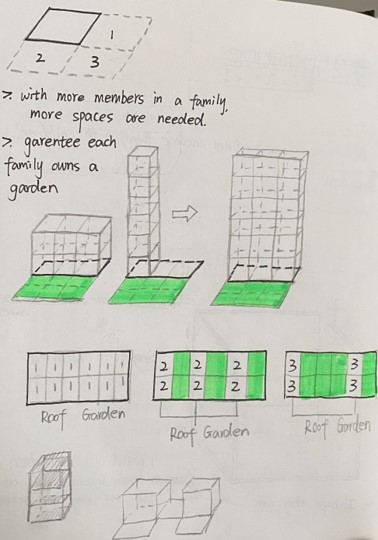 1
2 3
> with more members in a family,
more spaces are needed.
> garentee each
family owns a
garden
1 1 1 1 1 1
1 1 1 1 1 1
2 2 2
2 2 2
3 3
3 3
Roof Garden
Roof Garden
Roof Garden